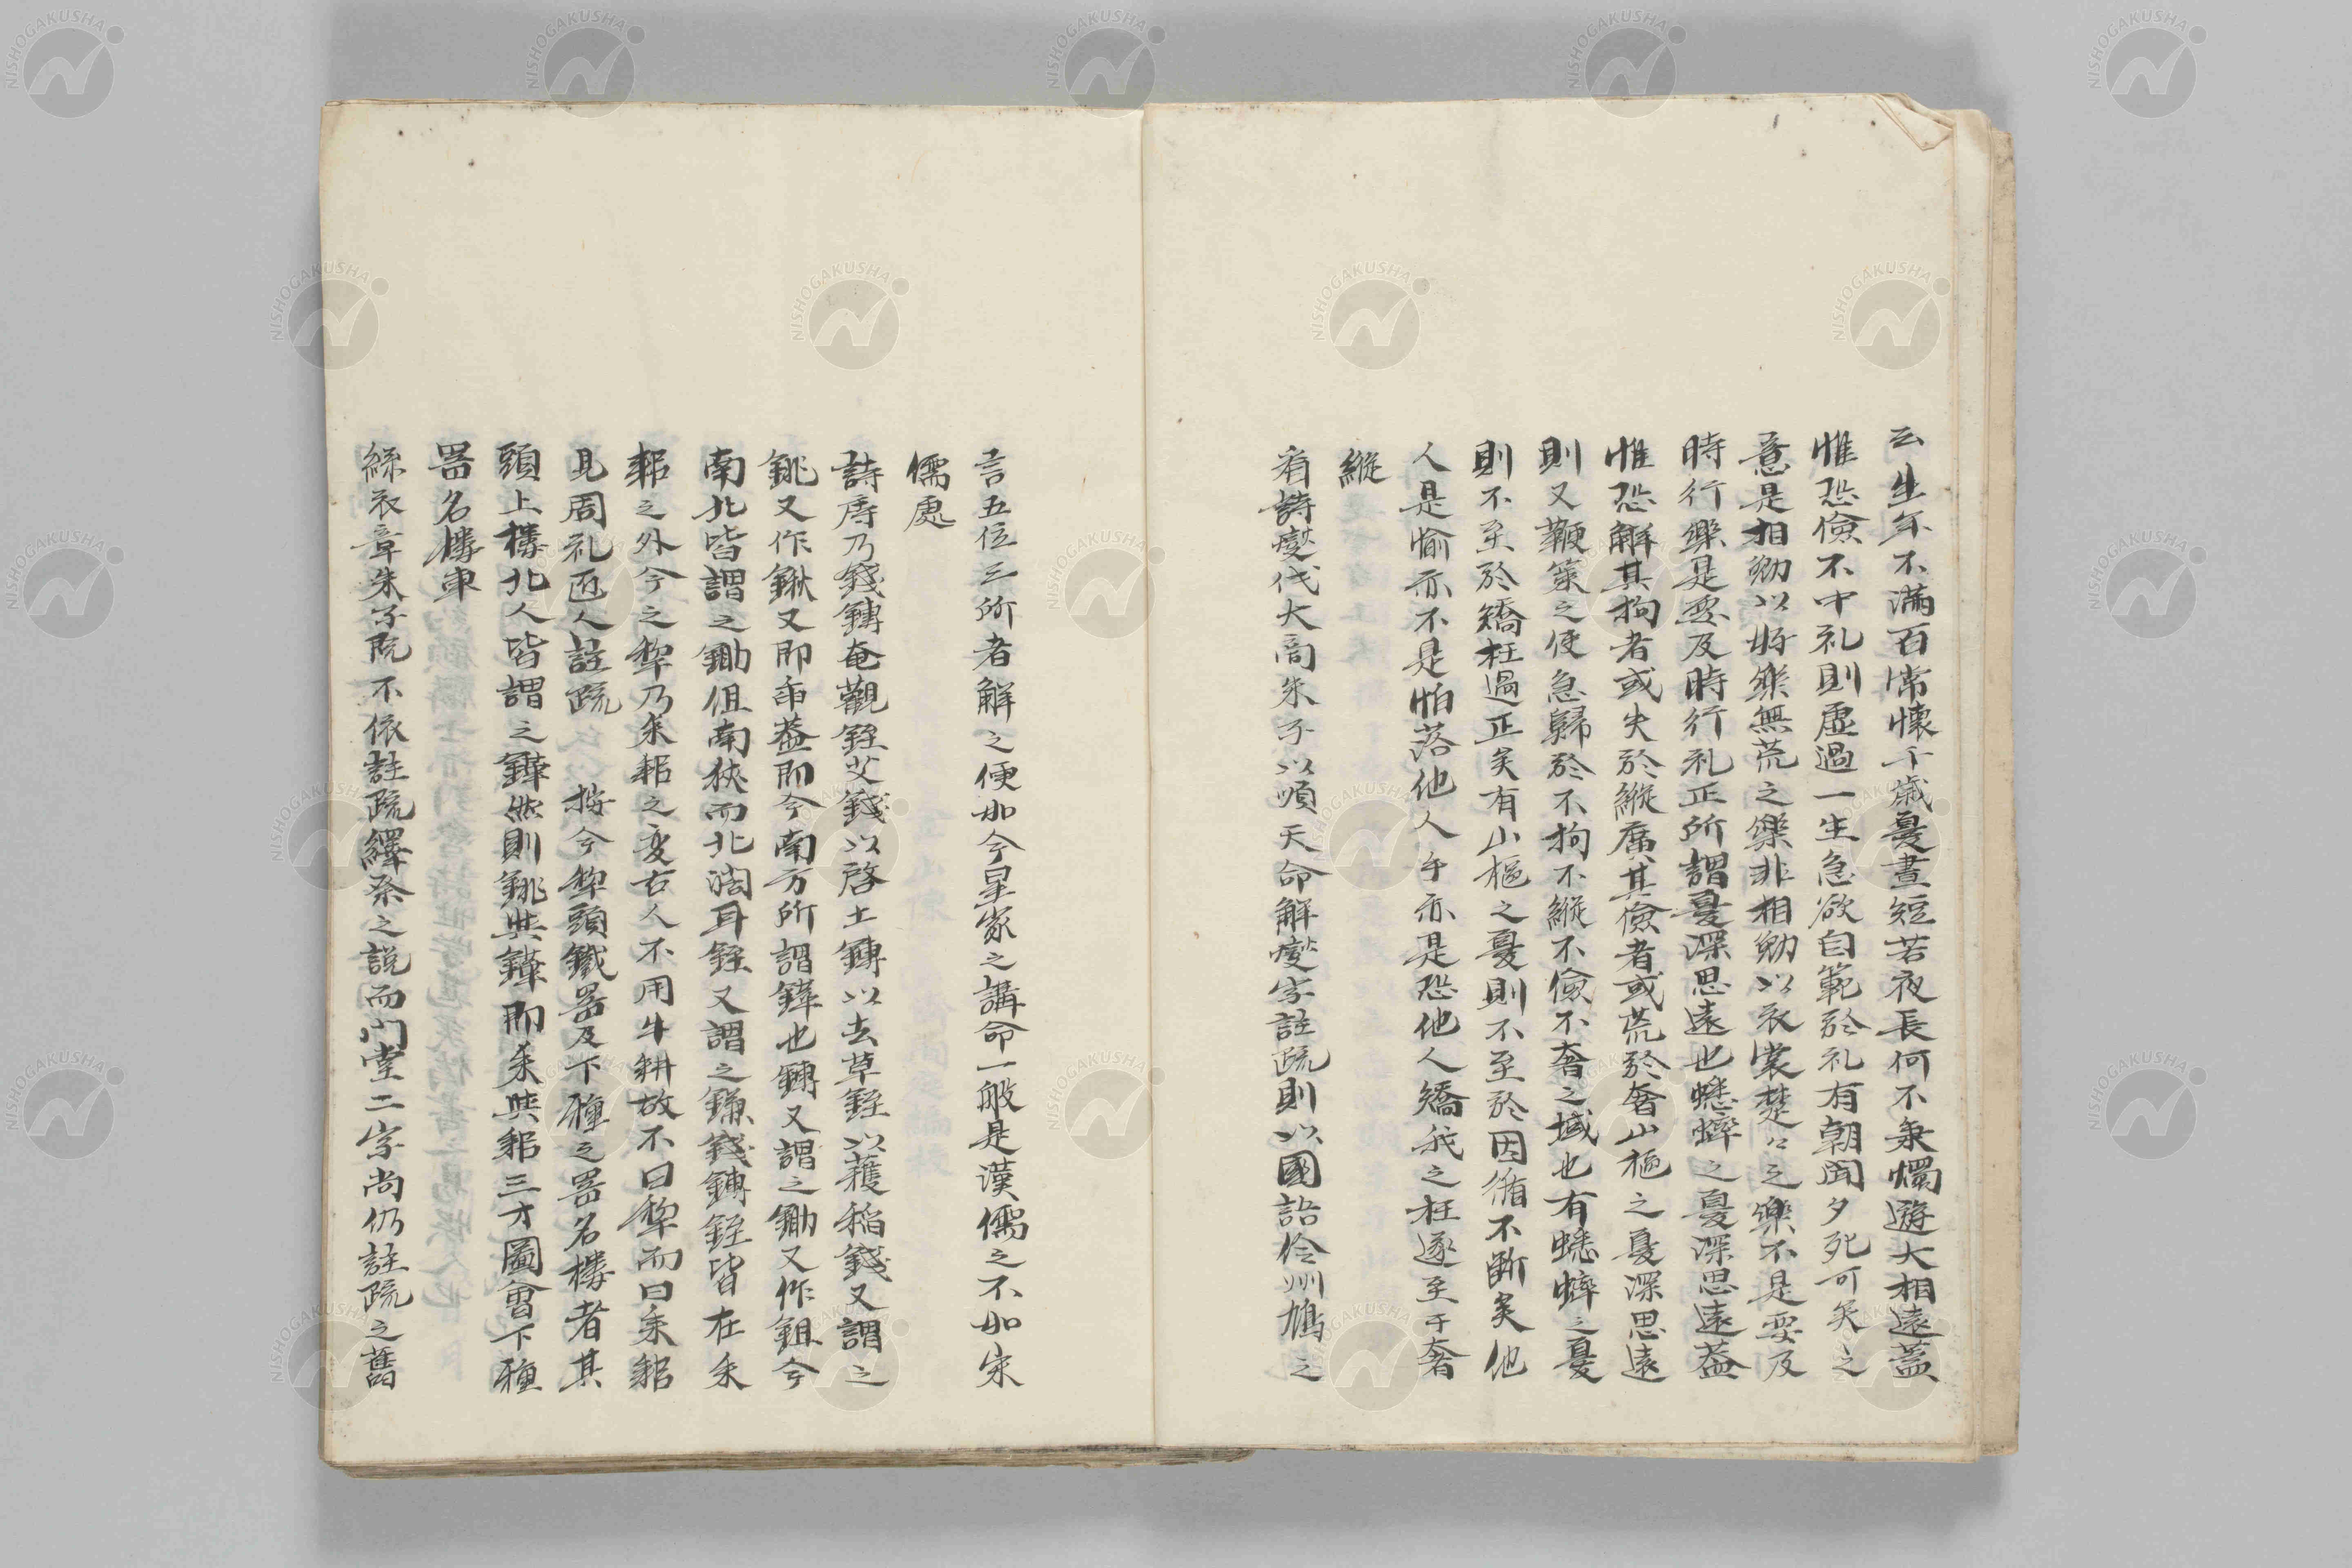 云生年不滿百常懷千歲憂晝短若夜長何不秉燭遊大相遠蓋
惟恐儉不中礼則虛過一生急欲自範於礼有朝聞夕死可矣之
意是相勉以好樂無荒之樂非相勉以衣裳楚々之樂不是要及
時行樂是要及時行礼正所謂憂深思遠也蟋蟀之憂深思遠蓋
惟恐解其拘者或失於縱廣其儉者或荒於奢山樞之憂深思遠
則又鞭策之便急歸於不拘不縱不儉不奢之域也有蟋蟀之憂
則不至於矯枉過正矣有山樞之憂則不至於因循不斷矣他
人是愉亦不是怕落他人手亦是恐他人矯我之枉遂至于奢
縱
看詩燮伐大商朱子以順天命解燮字註疏則以國語伶州鳩之
言五位三所者解之便如今星家之講命一般是漢儒之不如宋
儒處
詩庤乃錢鎛奄觀銍艾錢以啓土鎛以去草銍以穫稲錢又謂之
銚又作鍬又即臿蓋即今南方所謂鏵也鎛又謂之鋤又作鉏今
南北皆謂之鋤但南狹而北濶耳銍又謂之鐮錢鎛銍皆在耒
耜之外今之犂乃耒耜之变古人不用牛耕故不曰犂而曰耒耜
見周礼匠人註疏 按今犂頭鐵器及下種之器名耬者其
頭上耬北人皆謂之鏵然則銚與鏵即耒與耜三才圖會下種
器名耬車
絲衣章朱子既不依註疏繹祭之説而門堂二字尚仍註疏之舊
NISHOGAKUSHA